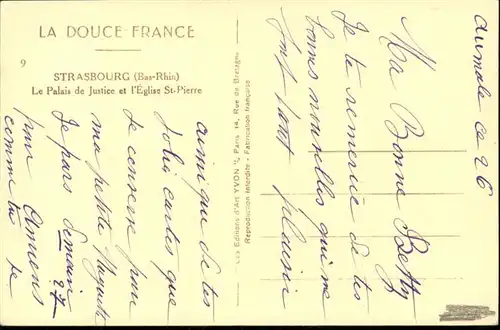 LA DOUCE FRANCE
9
STRASBOURG (Bas-Rhin)
Le Palais de Justice et l'Église St-Pierre
Les Editions d'Art YVON", Paris, 14, Rue de Bretagne
Reproduction Interdite - Fabrication française
aumale ce 26
Ma Bonne Betty
Je te remercie de tes
bonnes nouvelles qui me
font tant plaisir
ainsi que de tes
jolies cartes que
je conserve pour
ma petite Huguette
Je pars demain
27
pour Amiens
comme tu